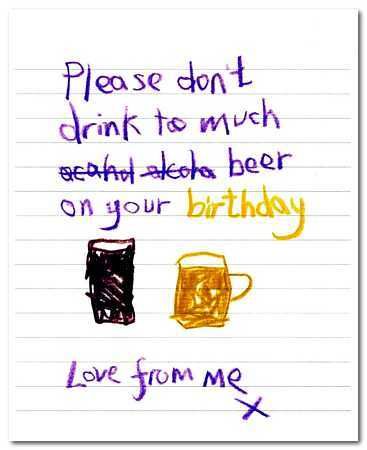 Please don't
drink to much
acahol alcoha beer
on your birthday
Love from me
x